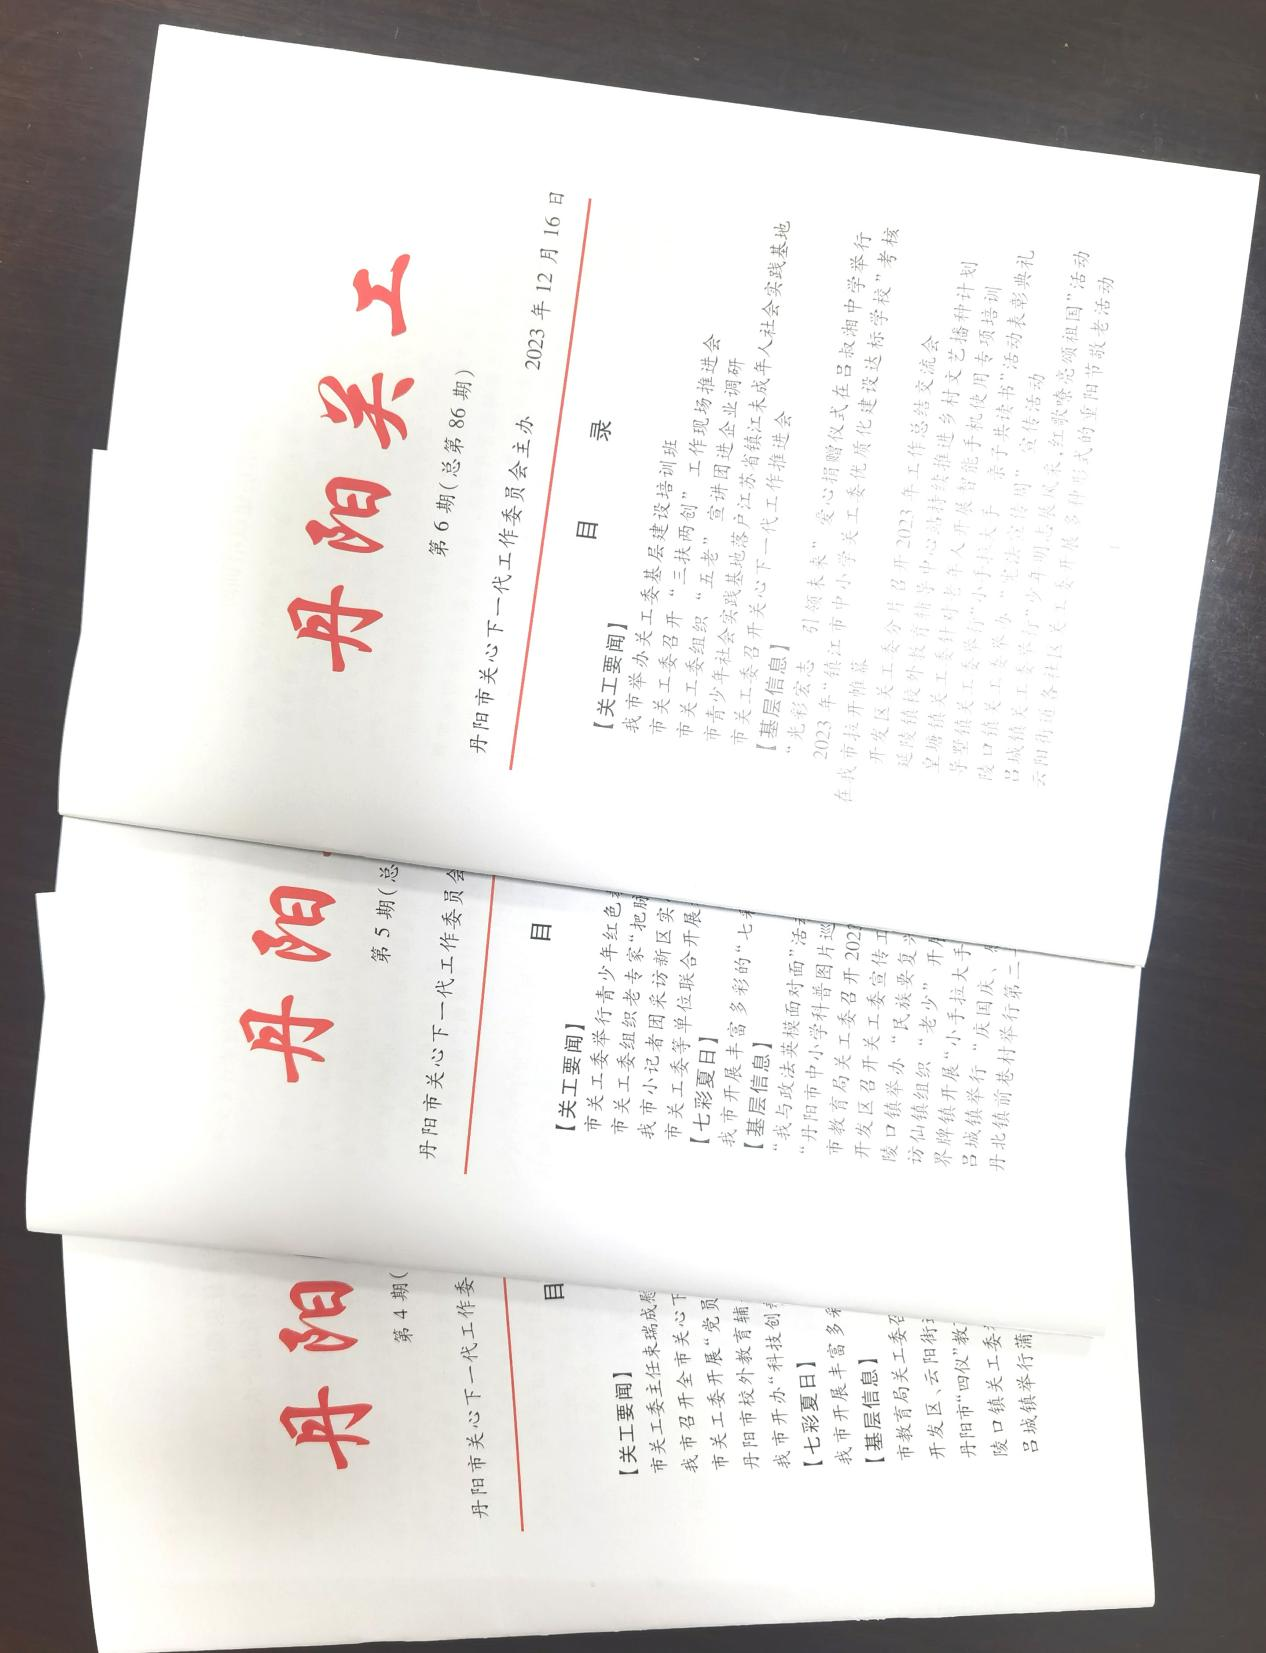 丹阳关工
第6期(总第86期)
丹阳市关心下一代工作委员会主办 2023年12月16日
目 录
【关工要闻】
我市举办关工委基层建设培训班
市关工委召开“三扶两创”工作现场推进会
市关工委组织“五老”宣讲团进企业调研
市青少年社会实践基地落户江苏省镇江未成年人社会实践基地
市关工委召开关心下一代工作推进会
【基层信息】
“光彩宏志 引领未来”爱心捐赠仪式在吕叔湘中学举行
2023年“镇江市中小学关工委优质化建设达标学校”考核
在我市拉开帷幕
开发区关工委分片召开2023年工作总结交流会
延陵镇校外教育辅导中心站持续推进乡村文艺播种计划
皇塘镇关工委针对老年人开展智能手机使用专项培训
导墅镇关工委举行“小手拉大手 亲子共读书”活动表彰典礼
陵口镇关工委举办“宪法宣传周”宣传活动
吕城镇关工委举行“少年明志展风采,红歌嘹亮颂祖国”活动
云阳街道各社区关工委开展多种形式的重阳节敬老活动
丹阳
第5期(总
丹阳市关心下一代工作委员会
目
【关工要闻】
市关工委举行青少年红色
市关工委组织老专家“把脉
我市小记者团采访新区实
市关工委等单位联合开展
【七彩夏日】
我市开展丰富多彩的“七彩
【基层信息】
“我与政法英模面对面”活动
“丹阳市中小学科普图片巡
市教育局关工委召开202
开发区召开关工委宣传工
陵口镇举办“民族要复兴
访仙镇组织“老少”开展
界牌镇开展“小手拉大手
吕城镇举行“庆国庆、
丹北镇前巷村举行第二
丹阳
第4期(
丹阳市关心下一代工作委
目
【关工要闻】
市关工委主任束瑞成慰
我市召开全市关心下
市关工委开展“党员
丹阳市校外教育辅
我市开办“科技创
【七彩夏日】
我市开展丰富多彩
【基层信息】
市教育局关工委召
开发区、云阳街道
丹阳市“四仪”教
陵口镇关工委
吕城镇举行蒲